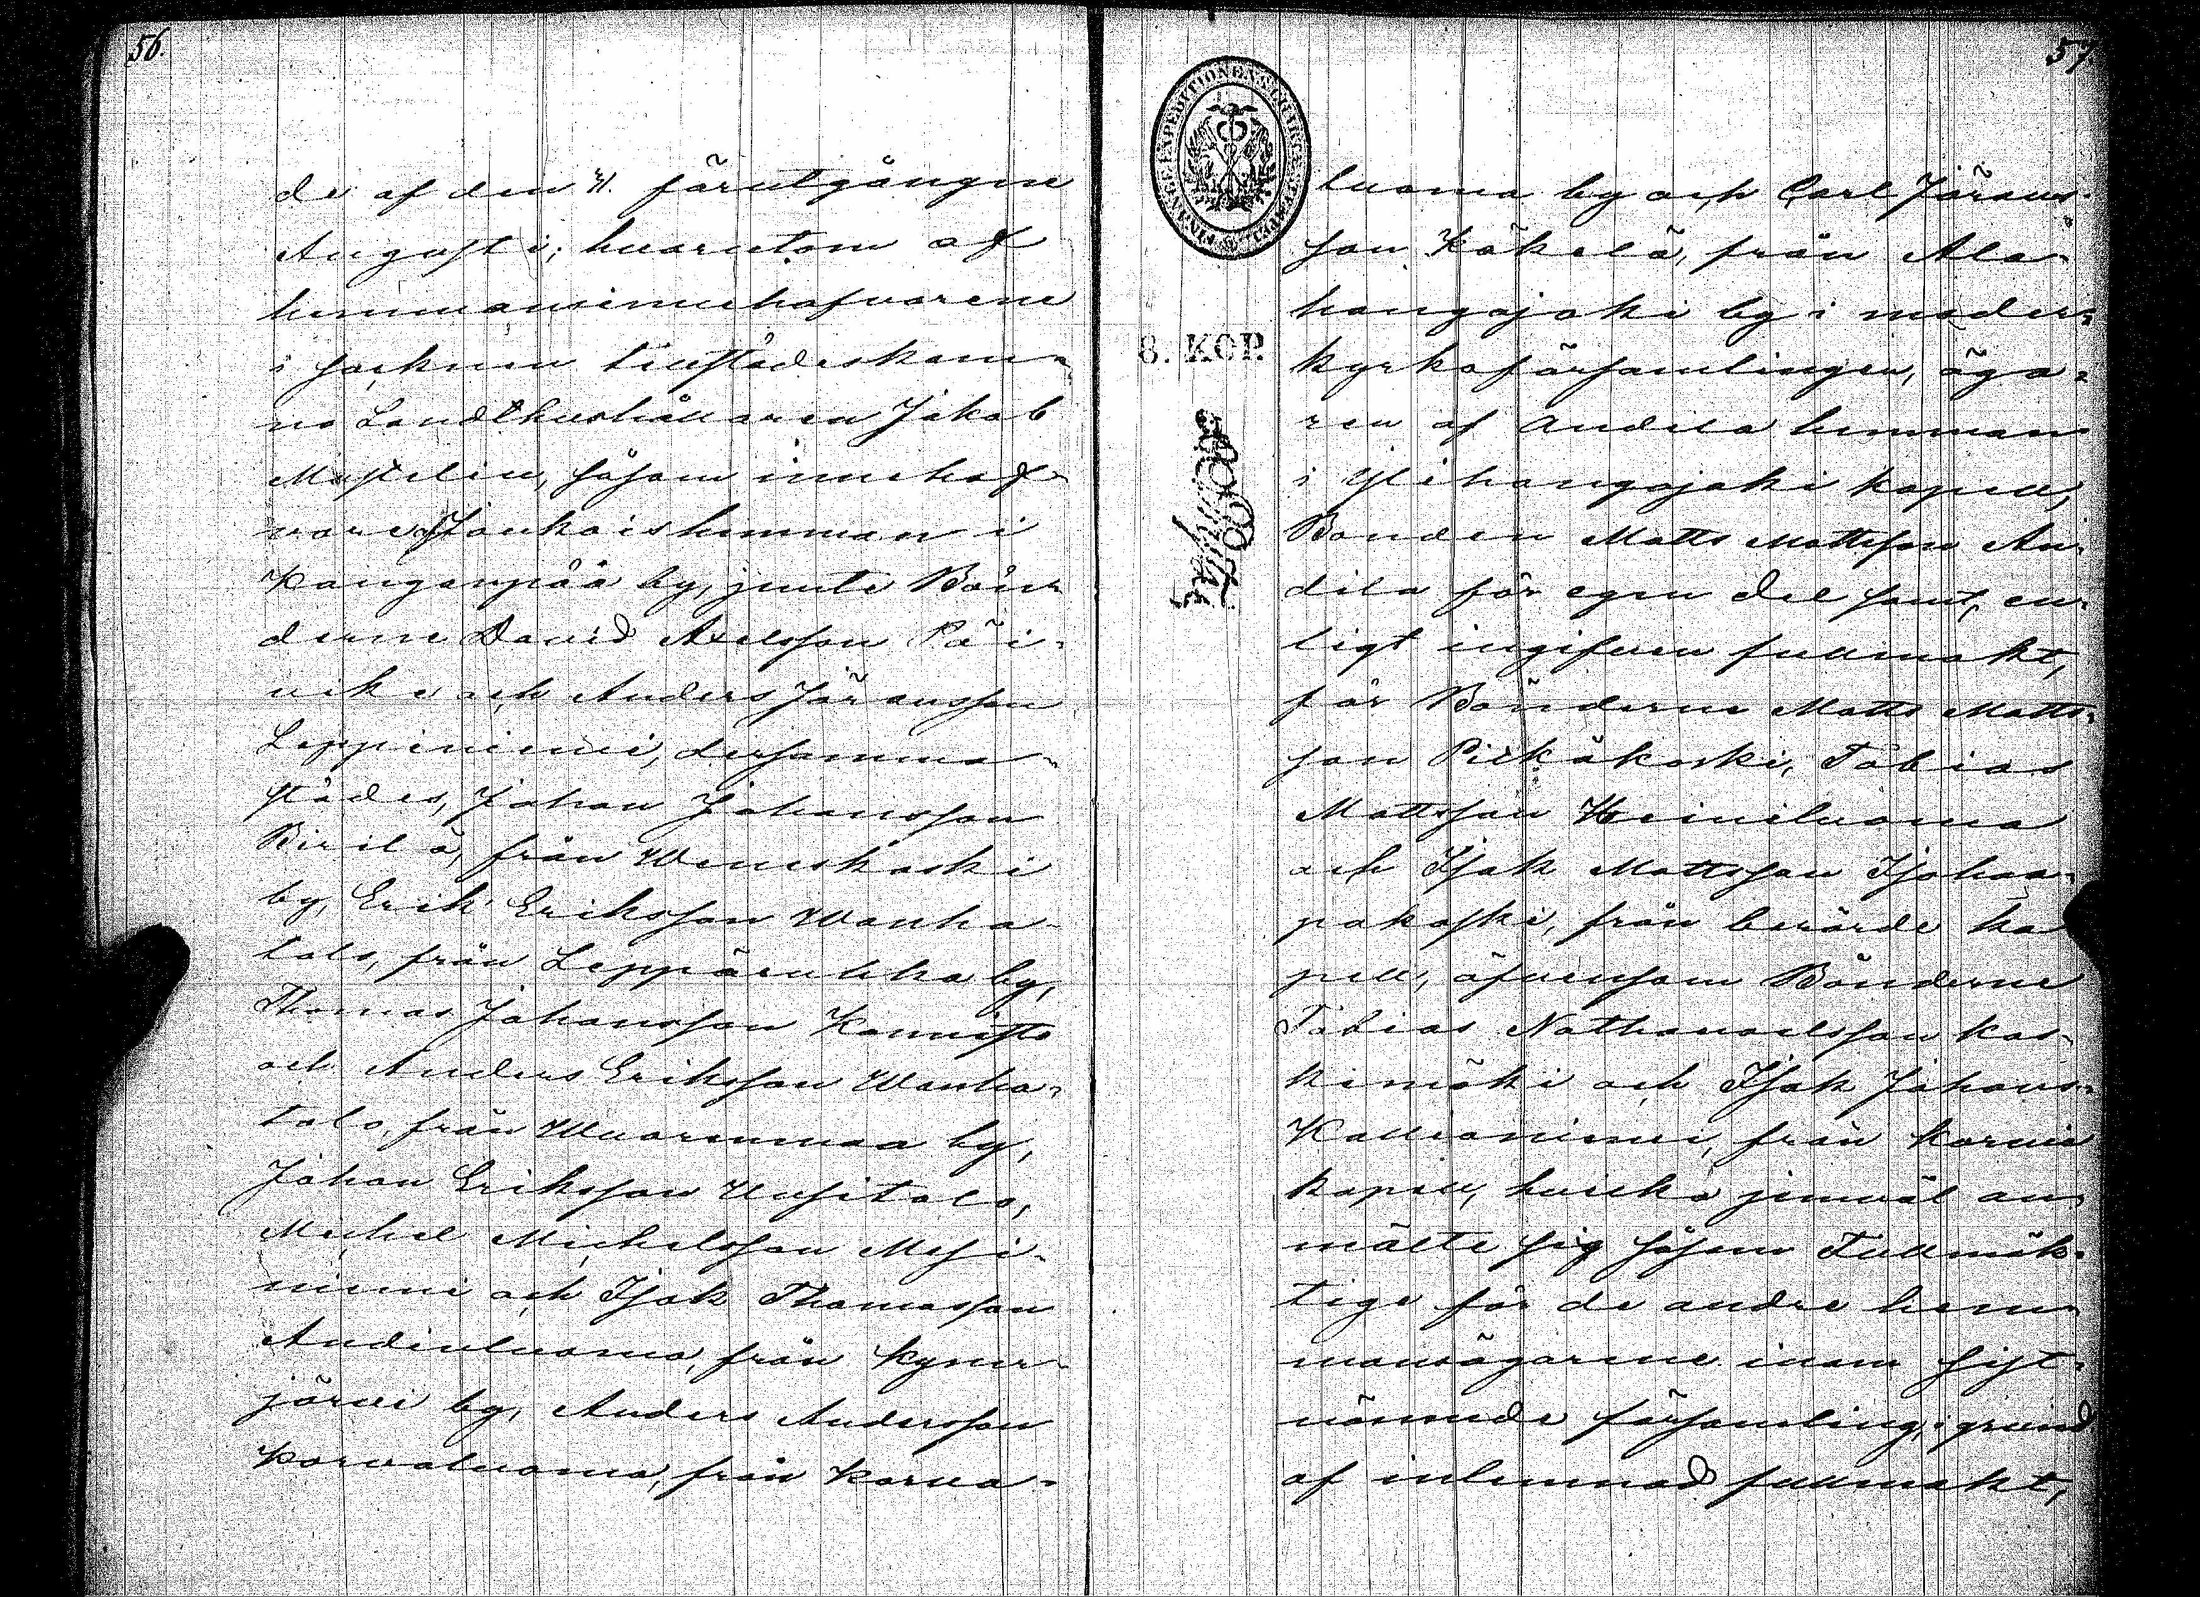 56.
de af den 4. förutgångne
Augusti; hvarutom af
hemmansinnehafvarene
i socknen tillstädeskom-
no Landthushållaren Jakob
Mustelin, såsom innehaf-
vare Jonkais hemman i
Kangenpää by, jemte Bön-
derne David Axelsson Päi-
vike och Anders Jöransson
Leppiniemi, dersamma-
städes, Johan Johansson
Birilä, från Weneskoski
by, Erik Eriksson Wanha-
talo, från Leppäruhka by,
Thomas Johansson Konnisto
och Anders Eriksson Wanha-
talo, från Wuorenmaa by,
Johan Eriksson Uusitalo,
Michel Michelsson Mesi-
niemi och Isak Thomasson
Andinluoma, från Kyner-
järvi by, Anders Andersson
Korvaluoma, från Korva-
57.
FINANCE EXPEDITIONENS CHARTÆ STEMPEL
8. KOP.
luoma by och Carl Jörans-
son Käkelä, från Ala-
hongojoki by i moder-
kyrkoförsamlingen, äga-
ren af Andila hemman
i Ylihongojoki kapell,
Bonden Matts Mattsson An-
dila för egen del samt, en-
ligt ingifven fullmakt,
för Bönderne Matts Matts-
son Pitkäkoski, Tobias
Mattsson Heiniluoma
och Isak Mattsson Isohaa-
pakoski, från berörde ka
pell, äfvensom Bönderne
Tobias Nathanaelsson Kos-
kimäki och Isak Johans-
Kallioniemi, från Karvia
kapell, hvilka jemväl an-
mälte sig såsom Fullmäk-
tige för de andre hem-
mansägarene inom sist-
nämnde församling, i grund
af inlemnad fullmakt,